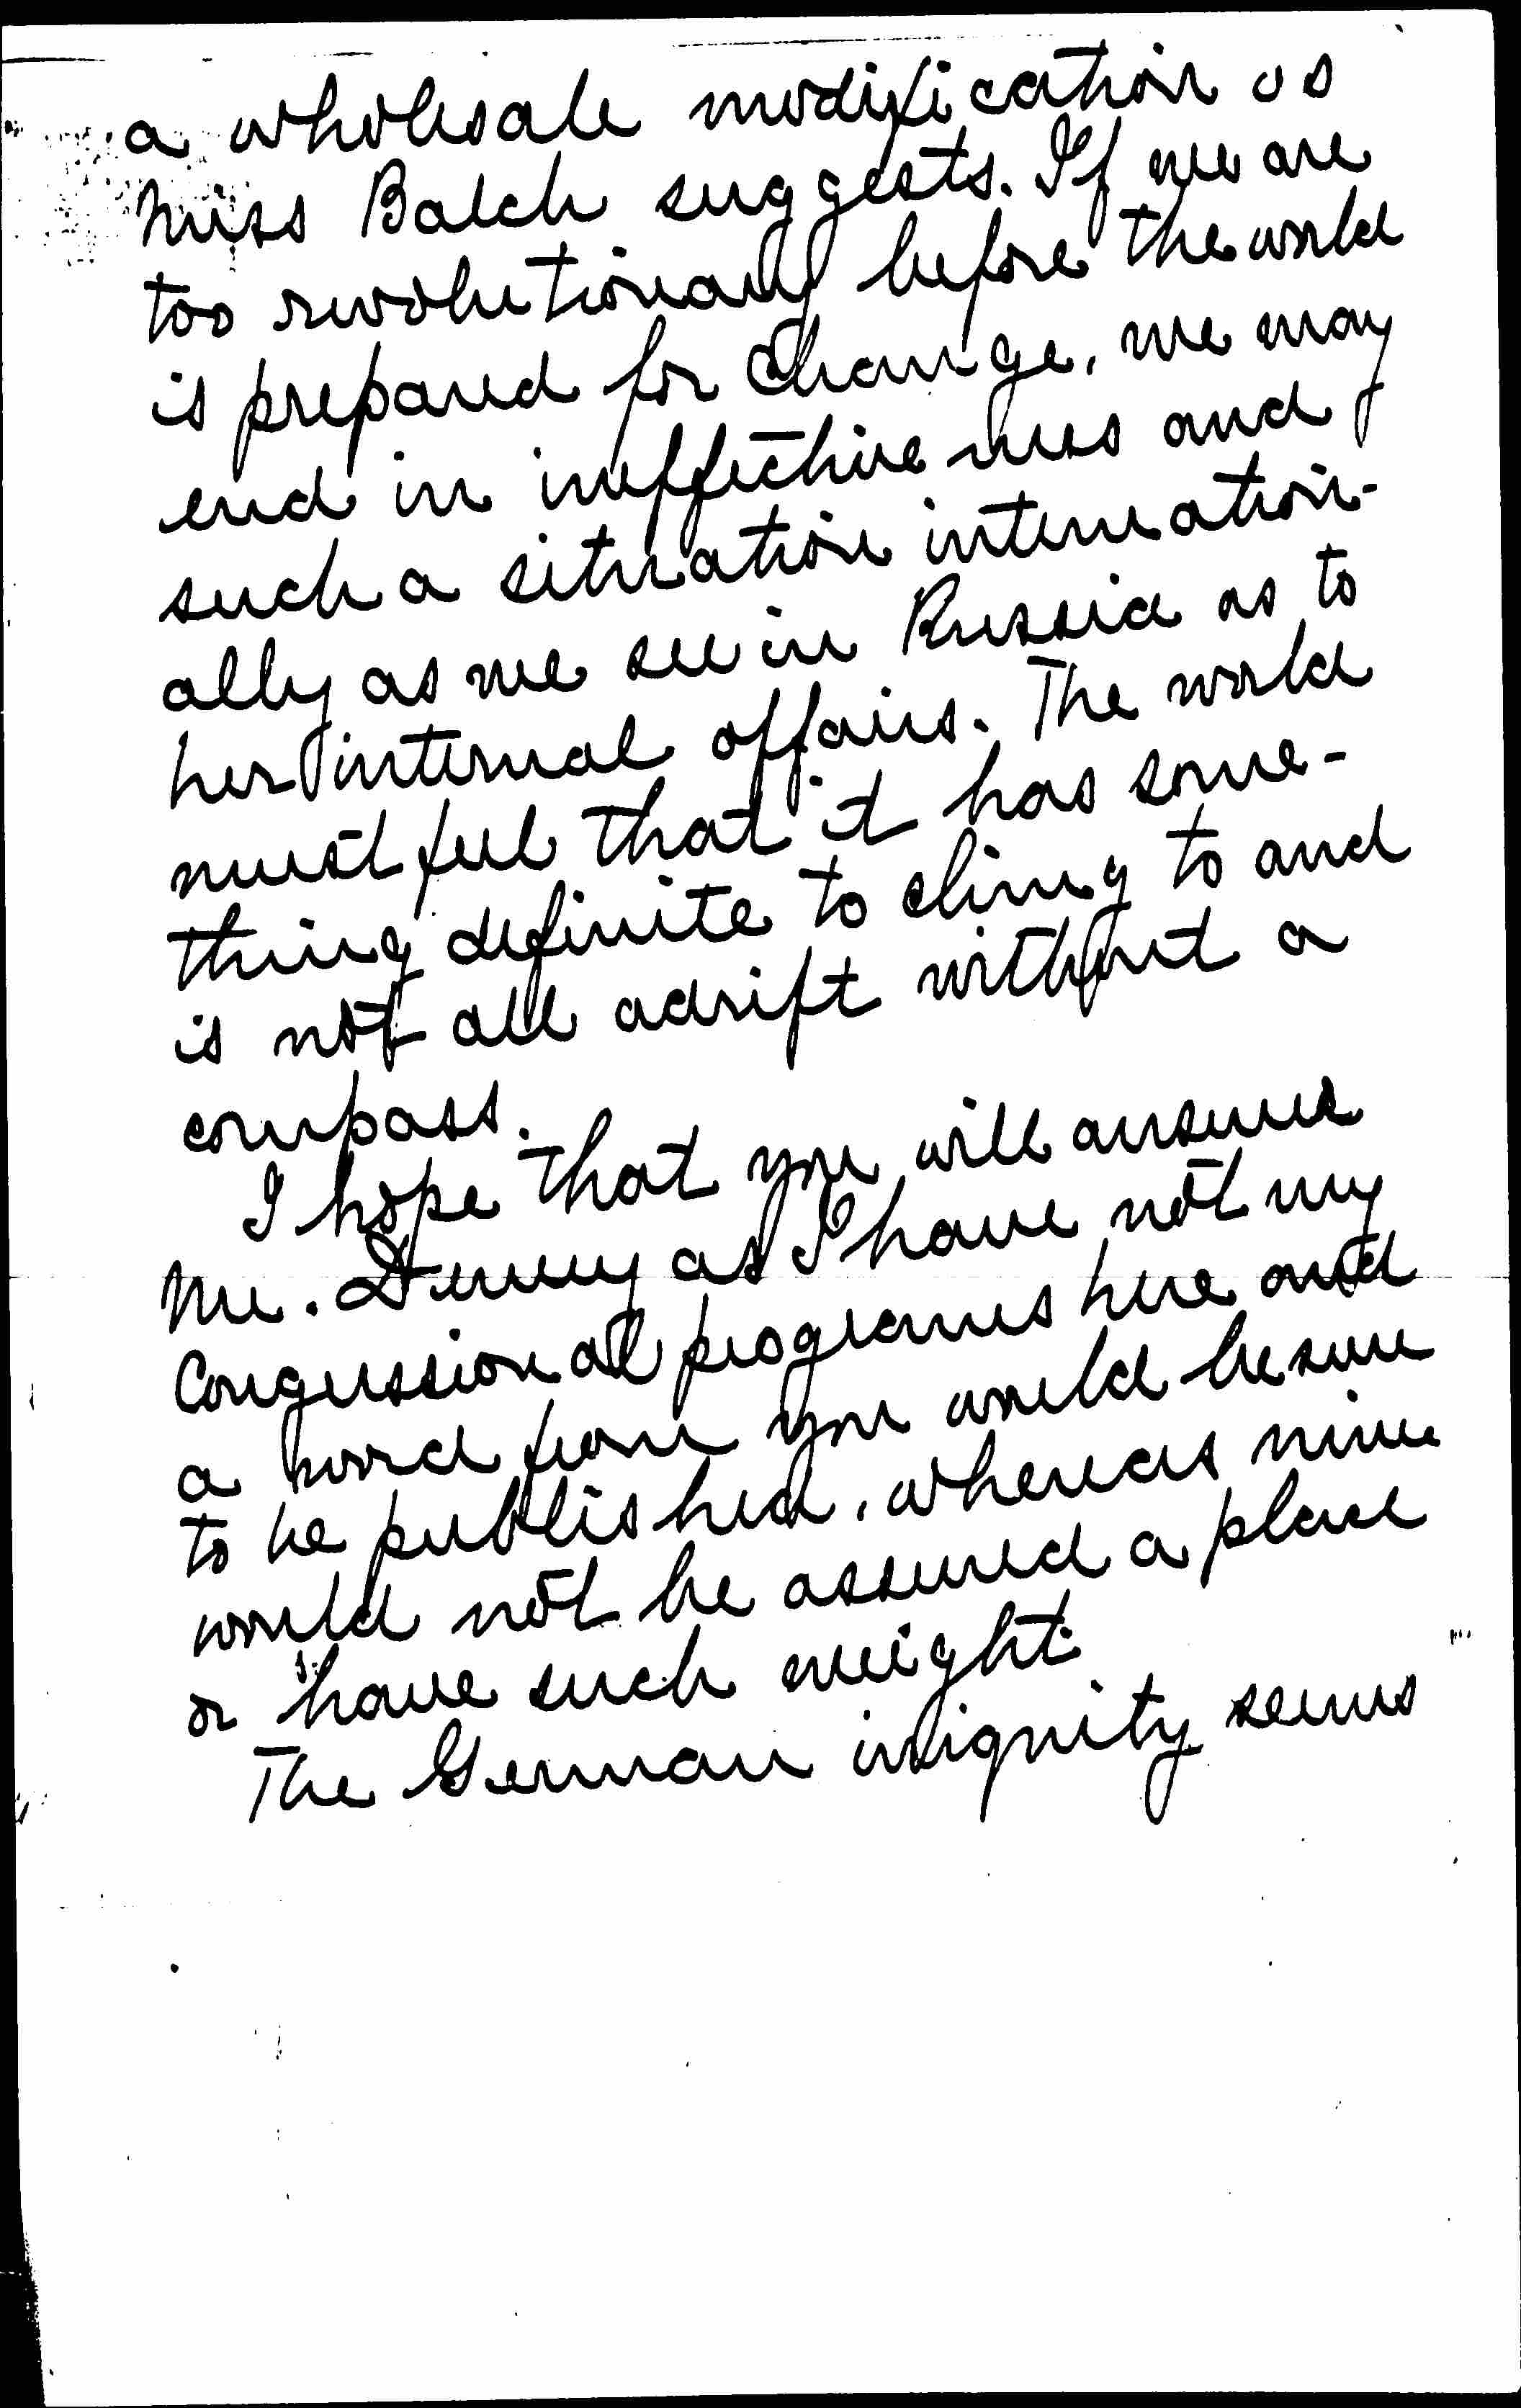 a wholesale modification as
Miss Balch suggests. If we are
too revolutionary before the world
is prepared for change, we may
end in ineffectiveness and
such a situation internation-
ally as we see in Russia as to
her internal affairs. The world
must feel that it has some-
thing definite to cling to and
is not all adrift without a
compass.
I hope that you will answer
Mr. as I have not my
Congressional programs here and
a word from you would be sure
to be published, whereas mine
would not be assured a place
or have such weight.
The German iniquity seems